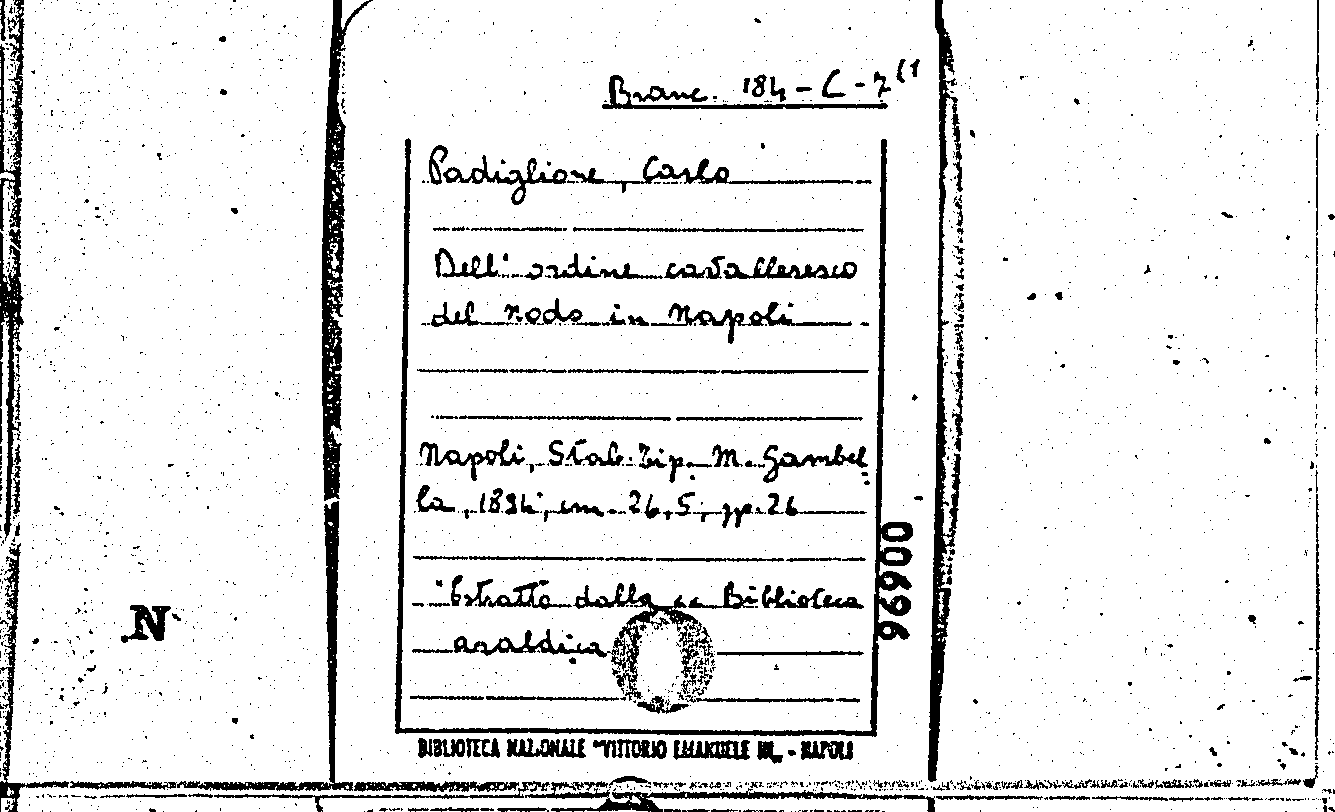 Branc. 184-C-7(1
Padiglione, Carlo
Dell' ordine cavalleresco
del nodo in Napoli
Napoli, Stab. Tip. M. Gambel
la, 1894, cm. 26,5, pp. 26
"Estratto dalla << Biblioteca
araldica
00696
N
BIBLIOTECA NAZIONALE "VITTORIO EMANUELE III„ - NAPOLI